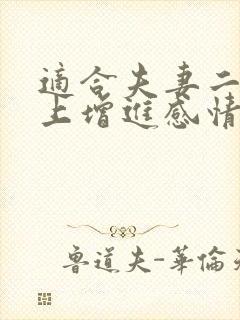 適合夫妻二
上增進感情
魯道夫-華倫